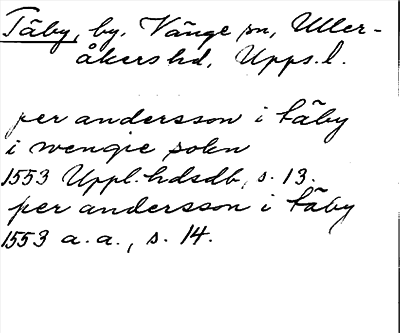 Täby, by, Vänge sn, Uller-
åkers hd, Upps. l.
per andersson i täby
i wengie sokn
1553 Uppl. hdsdb, s. 13.
per andersson i täby
1553 a. a., s. 14.